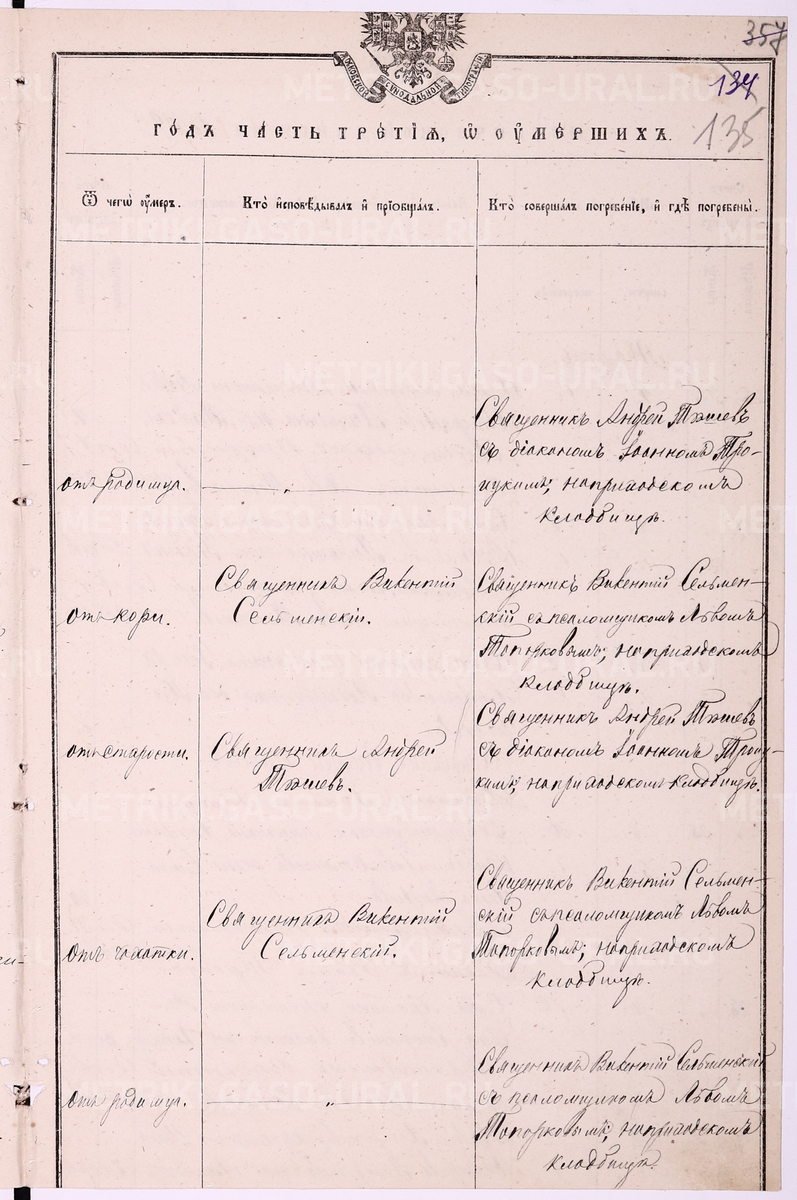 357
134
135
МОСКОВСКОЙ СѴНОДАЛЬНОЙ ТИПОГРАФІИ
ГОДЪ ЧАСТЬ ТРЕТІЯ, Ѡ ОУМЕРШИХЪ.
Ѿ чегѡ оумеръ.
Кто исповѣдывалъ и пріобщалъ.
Кто совершалъ погребеніе, и гдѣ погребены.
отъ родимца.
Священникъ Андрей
съ діакономъ Іоанномъ Тро-
ицкимъ; на приходскомъ
кладбищѣ.
отъ кори.
Священникъ Викентій
Сельменскій.
Священникъ Викентій Сельмен-
скій съ псаломщикомъ Львомъ
Топорковымъ; на приходскомъ
кладбищѣ.
отъ старости.
Священникъ Андрей
Священникъ Андрей
съ діакономъ Іоанномъ Троиц-
кимъ; на приходскомъ кладбищѣ.
отъ чахотки.
Священникъ Викентій
Сельменскій.
Священникъ Викентій Сельмен-
скій съ псаломщикомъ Львомъ
Топорковымъ; на приходскомъ
кладбищѣ.
отъ родимца.
Священникъ Викентій Сельменскій
съ псаломщикомъ Львомъ
Топорковымъ; на приходскомъ
кладбищѣ.
METRIKI.GASO-URAL.RU